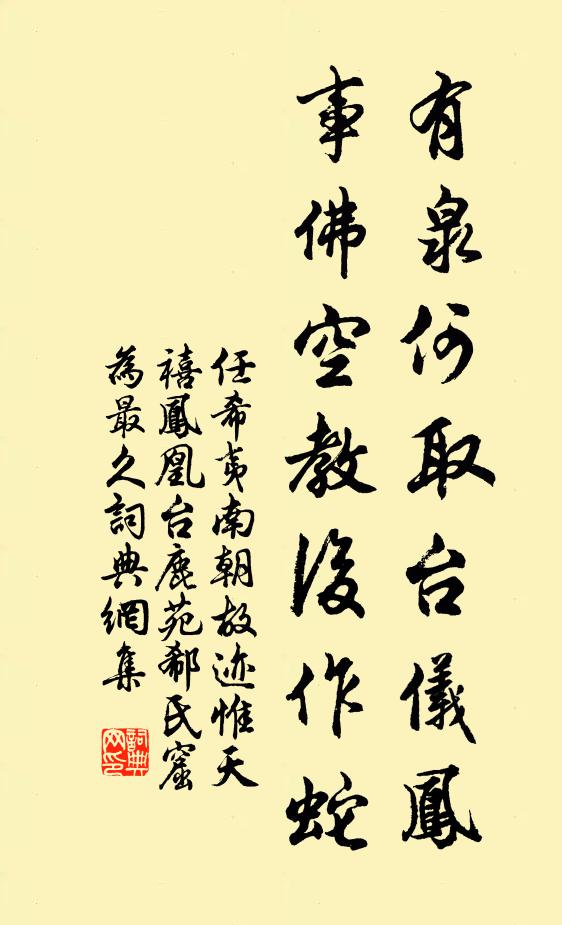 有泉何取台儀鳳
事佛空教後作蛇
任希夷南朝故迹惟天
禧鳳凰台鹿苑郗氏窟
為最久詞典網集
詞典网印